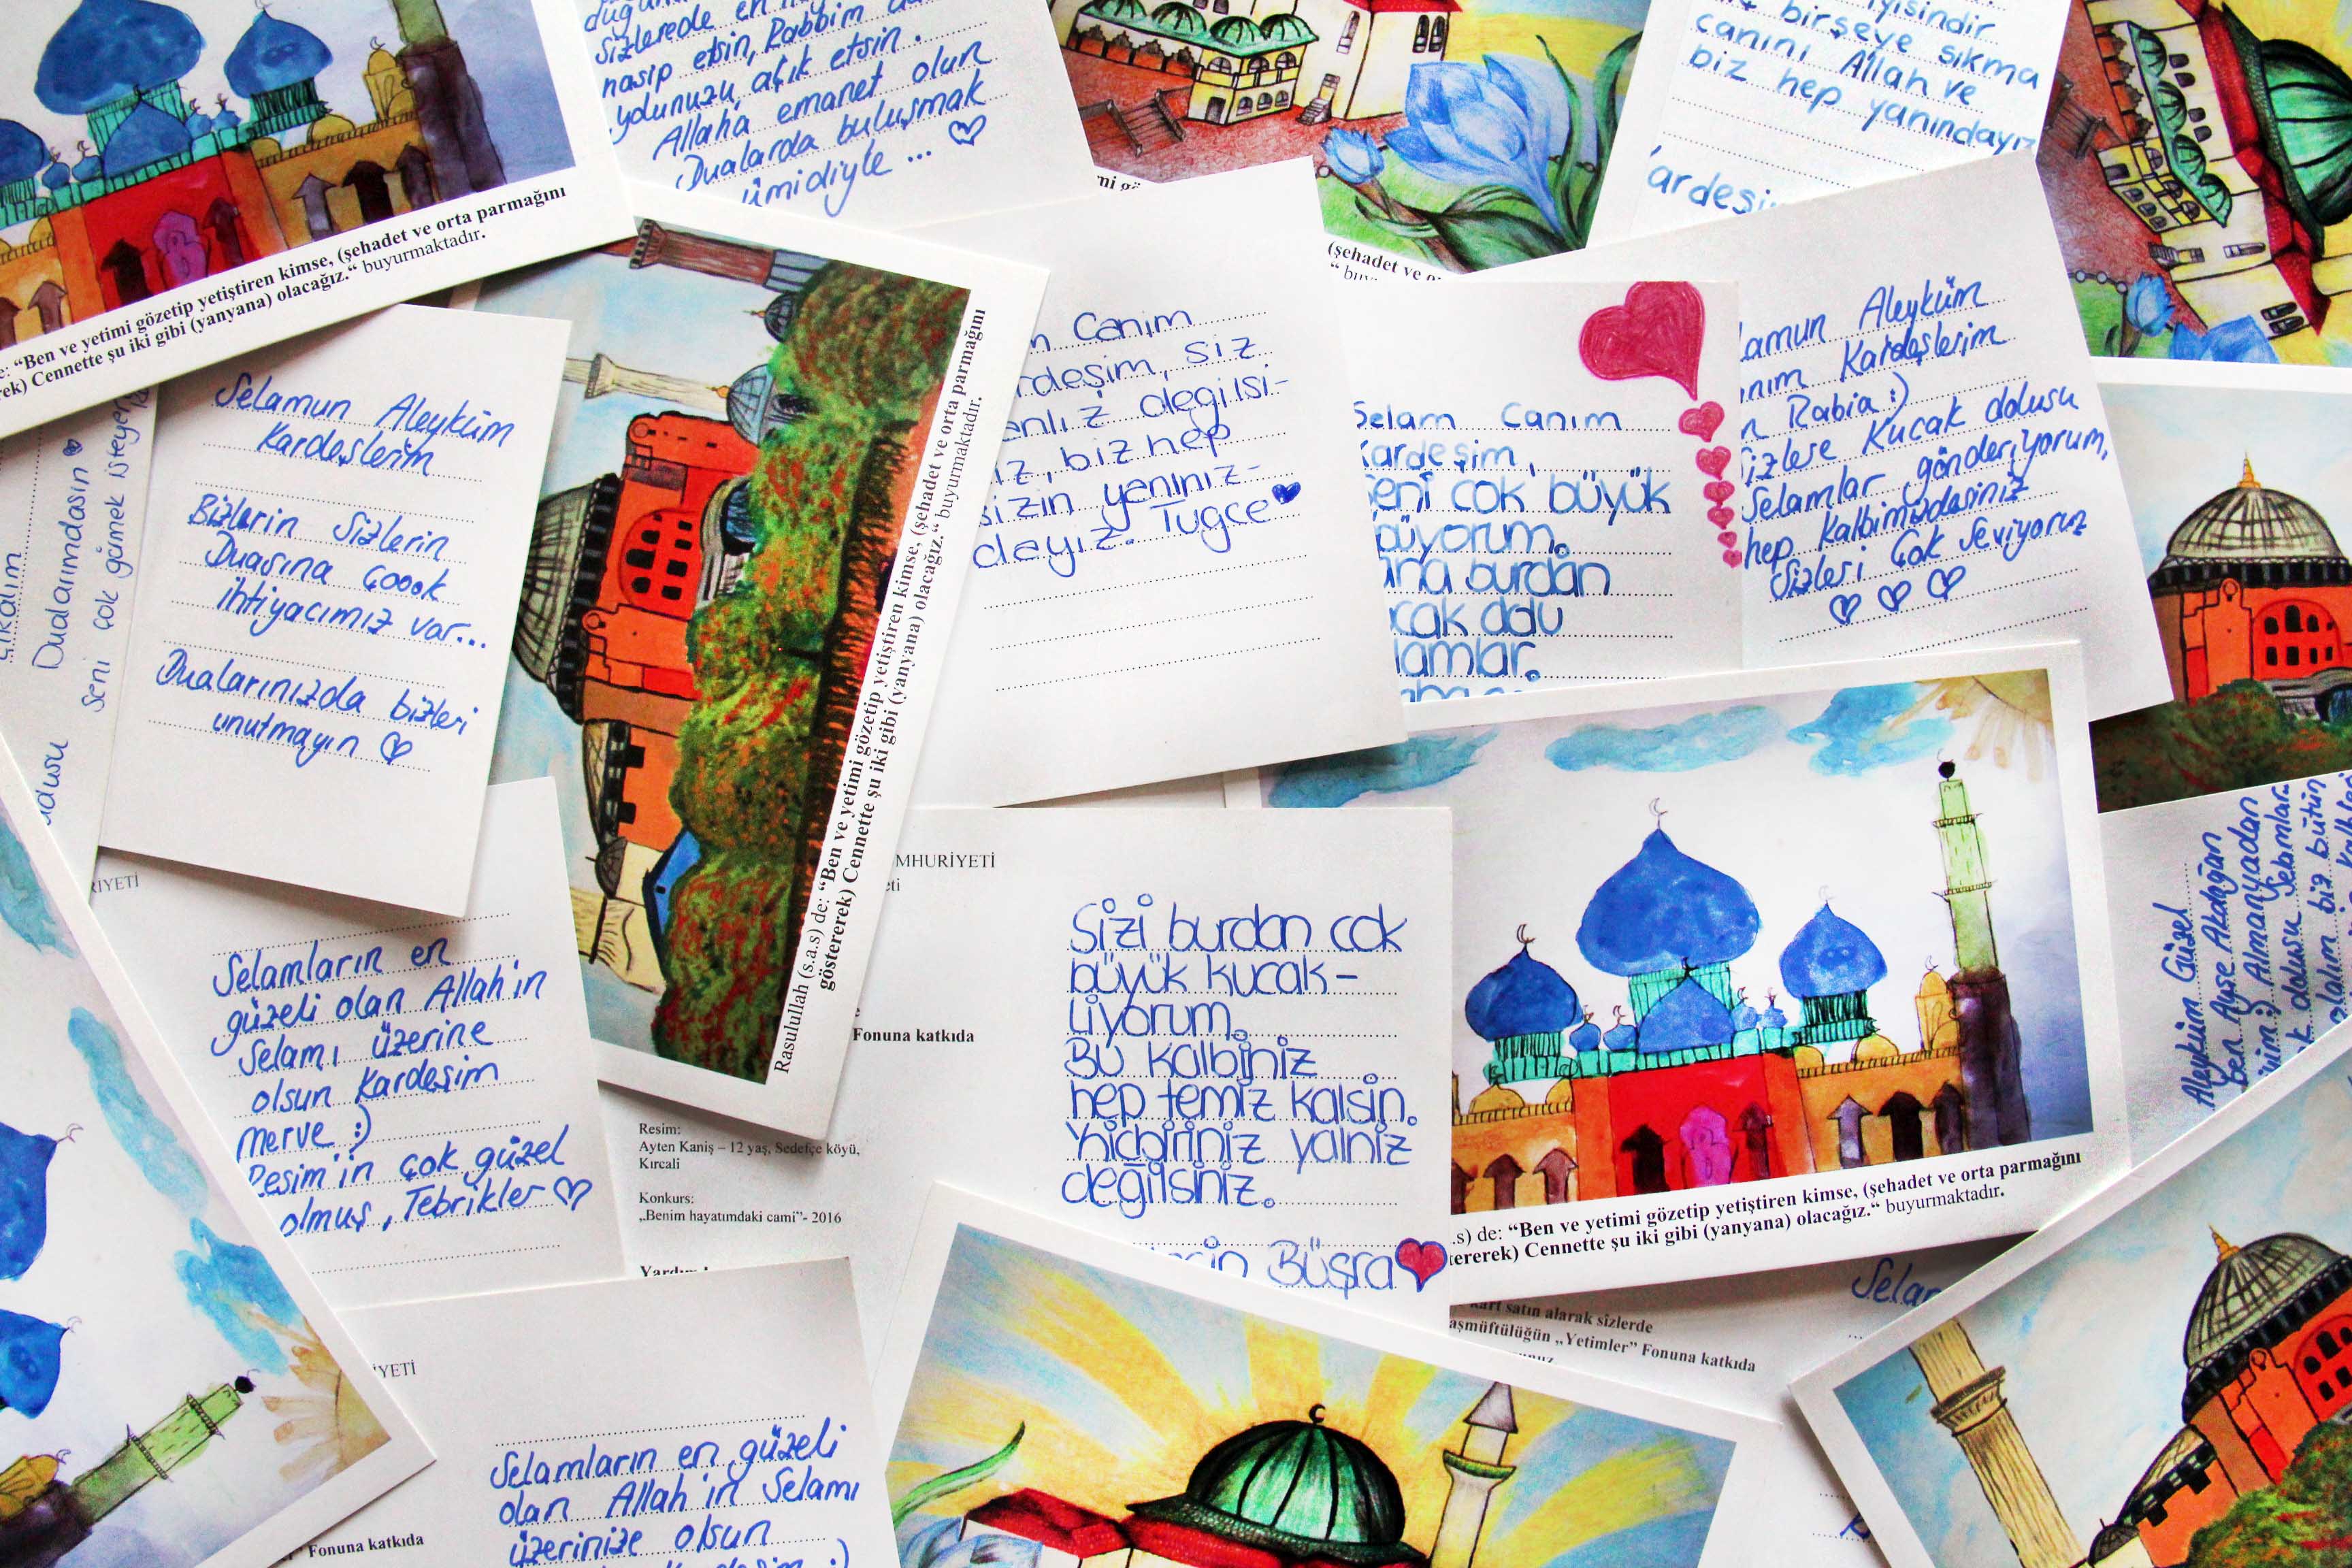 sizlerede en
nasip etsin, Rabbim
yolunuzu açık etsin.
Allaha emanet olun
Dualarda buluşmak
ümidiyle ...
birşeye sıkma
canını Allah ve
biz hep yanındayız
“Ben ve yetimi gözetip yetiştiren kimse, (şehadet ve orta parmağını
Cennette şu iki gibi (yanyana) olacağız.“ buyurmaktadır.
(şehadet ve
Selamun Aleyküm
Kardeşlerim
Bizlerin Sizlerin
Duasına çoook
ihtiyacımız var...
Dualarınızda bizleri
unutmayın
Dualarımdasın
Seni çok görmek isteyen
Rasulullah (s.a.s) de: “Ben ve yetimi gözetip yetiştiren kimse, (şehadet ve orta parmağını
göstererek) Cennette şu iki gibi (yanyana) olacağız.“ buyurmaktadır.
Canim
siz
degilsi-
biz hep
sizin yeniniz-
deyiz. Tugce
Selam Canım
Kardeşim,
Seni cok büyük
burdan
dolu
Aleyküm
Kardeşlerim
Rabia :)
Sizlere Kucak dolusu
Selamlar gönderiyorum,
hep kalbimizdesiniz
Sizleri çok seviyoruz
Selamların en
güzeli olan Allah'ın
Selamı üzerine
olsun Kardeşim
Merve :)
Resim'in çok güzel
olmuş, Tebrikler
Fonuna katkıda
Resim:
Ayten Kaniş – 12 yaş, Sedefçe köyü,
Kırcali
Konkurs:
„Benim hayatımdaki cami”- 2016
Sizi burdan cok
büyük kucak-
liyorum.
Bu kalbiniz
hep temiz kalsin.
hicbiriniz yalniz
değilsiniz.
Büşra
de: “Ben ve yetimi gözetip yetiştiren kimse, (şehadet ve orta parmağını
Cennette şu iki gibi (yanyana) olacağız.“ buyurmaktadır.
kart satın alarak sizlerde
„Yetimler” Fonuna katkıda
Aleyküm Güzel
ben Ayşe Akdağan
Almanyadan
dolusu Selamlar
biz bütün
Fonuna katkıda
Selamların en güzeli
olan Allah'ın Selamı
üzerinize olsun